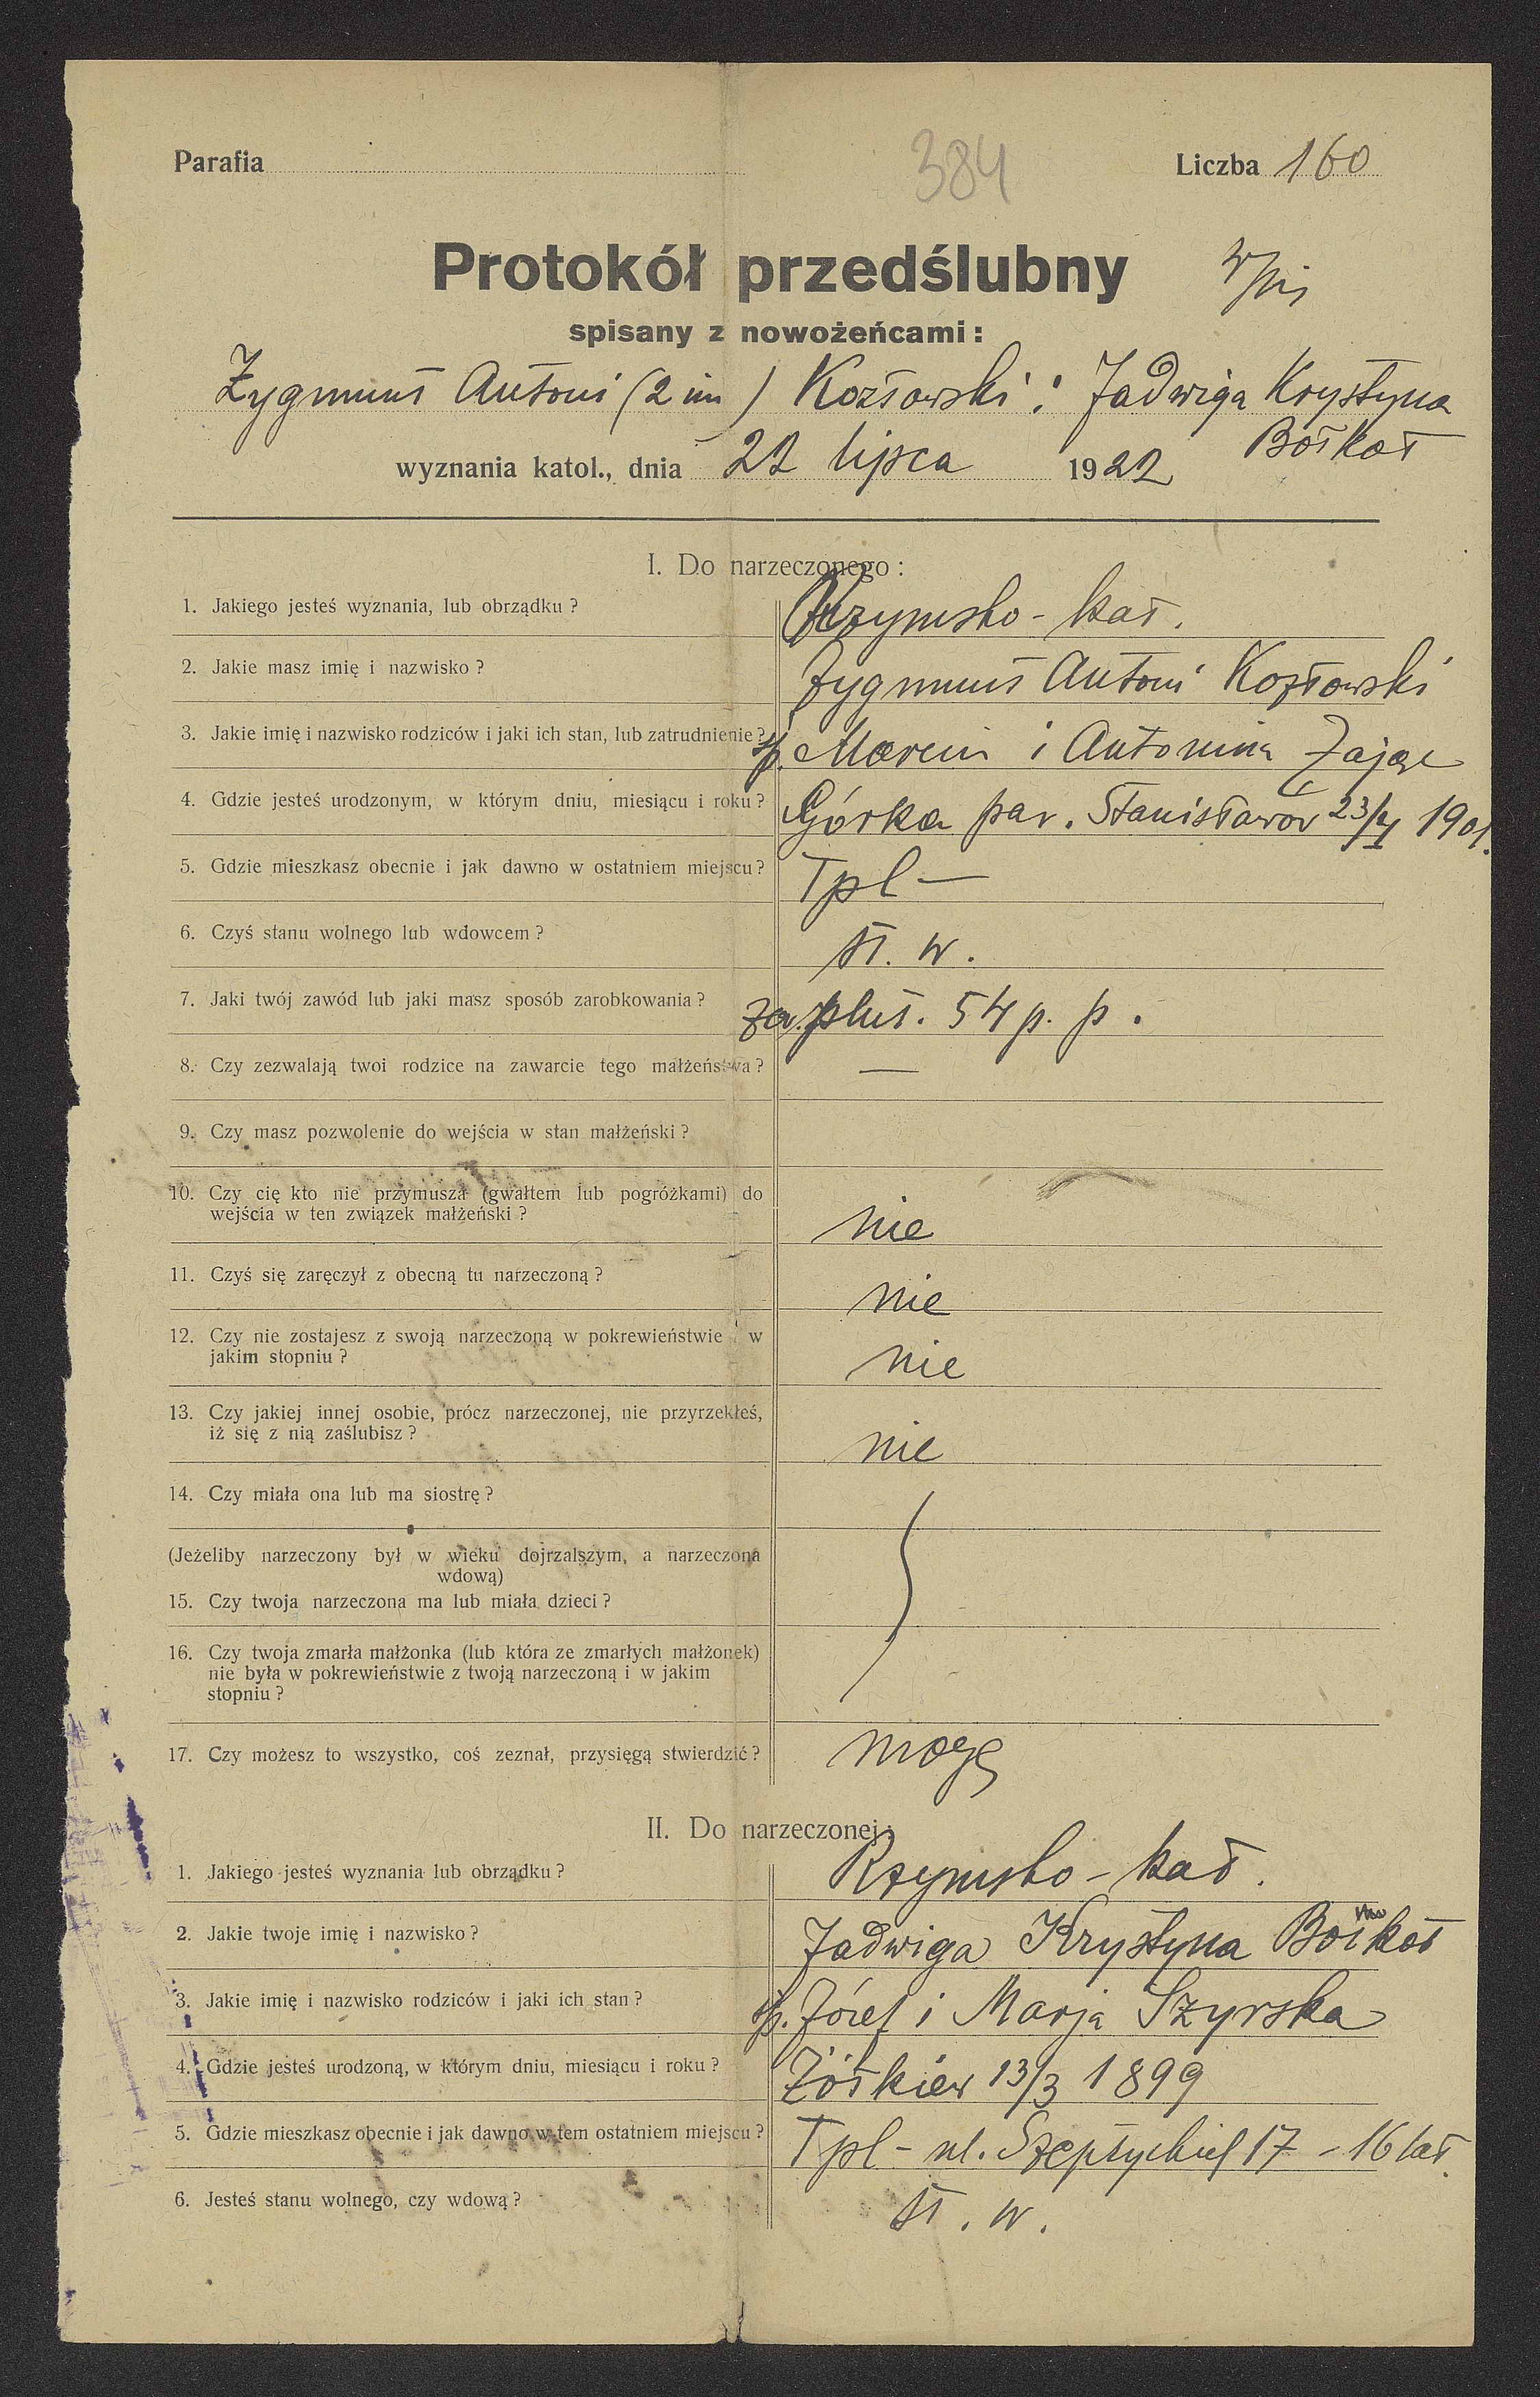 Parafia
384
Liczba 160
Protokół przedślubny
spisany z nowożeńcami:
Zygmunt Antoni (2 im) Kozłowski i Jadwiga Krystyna
Bołkot
wyznania katol., dnia 22 lipca 1922
I. Do narzeczonego:
1. Jakiego jesteś wyznania, lub obrządku? Rzymsko-kat.
2. Jakie masz imię i nazwisko? Zygmunt Antoni Kozłowski
3. Jakie imię i nazwisko rodziców i jaki ich stan, lub zatrudnienie? śp. Marcin i Antonina Zając
4. Gdzie jesteś urodzonym, w którym dniu, miesiącu i roku? Górka par. Stanisławów 23/ 1901.
5. Gdzie mieszkasz obecnie i jak dawno w ostatniem miejscu? Tpl —
6. Czyś stanu wolnego lub wdowcem? st. w.
7. Jaki twój zawód lub jaki masz sposób zarobkowania? zaw. plut. 54 p. p.
8. Czy zezwalają twoi rodzice na zawarcie tego małżeństwa? —
9. Czy masz pozwolenie do wejścia w stan małżeński?
10. Czy cię kto nie przymusza (gwałtem lub pogróżkami) do
wejścia w ten związek małżeński? nie
11. Czyś się zaręczył z obecną tu narzeczoną? nie
12. Czy nie zostajesz z swoją narzeczoną w pokrewieństwie i w
jakim stopniu? nie
13. Czy jakiej innej osobie, prócz narzeczonej, nie przyrzekłeś,
iż się z nią zaślubisz? nie
14. Czy miała ona lub ma siostrę?
(Jeżeliby narzeczony był w wieku dojrzalszym, a narzeczona
wdową)
15. Czy twoja narzeczona ma lub miała dzieci?
16. Czy twoja zmarła małżonka (lub która ze zmarłych małżonek)
nie była w pokrewieństwie z twoją narzeczoną i w jakim
stopniu?
17. Czy możesz to wszystko, coś zeznał, przysięgą stwierdzić? mogę
II. Do narzeczonej:
1. Jakiego jesteś wyznania lub obrządku? Rzymsko-kat.
2. Jakie twoje imię i nazwisko? Jadwiga Krystyna
3. Jakie imię i nazwisko rodziców i jaki ich stan? śp. Józef i Marja Szyrska
4. Gdzie jesteś urodzoną, w którym dniu, miesiącu i roku? Żółkiew 13/3 1899
5. Gdzie mieszkasz obecnie i jak dawno w tem ostatniem miejscu? Tpl - ul. Szeptyckiej 17 - 16 lat.
6. Jesteś stanu wolnego, czy wdową? st. w.